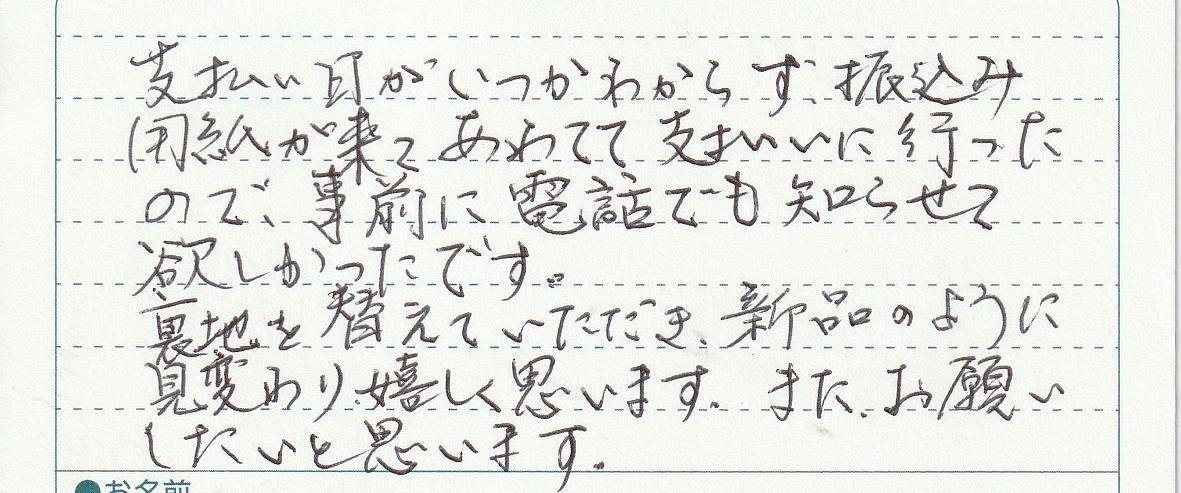 支払い日がいつかわからず、振込み
用紙が来てあわてて支払いに行った
ので、事前に電話でも知らせて
欲しかったです。
裏地を替えていただき、新品のように
見変わり嬉しく思います。また、お願い
したいと思います。
●お名前